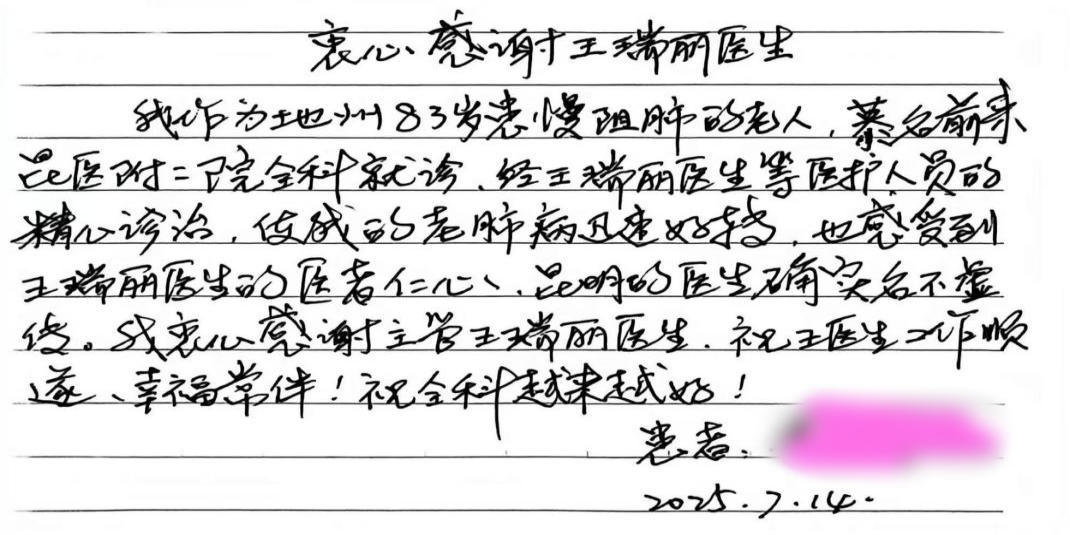 衷心感谢王瑞丽医生
我作为土地州83岁患慢阻肺的老人，慕名前来
昆医附二院全科就诊、经王瑞丽医生等医护人员的
精心诊治，使我的老肺病迅速好转，也感受到
王瑞丽医生的医者仁心、昆明的医生确实名不虚
传。我衷心感谢主管王瑞丽医生．祝王医生工作顺
遂、幸福常伴！祝全科越来越好！
患者：
2025.7.14.